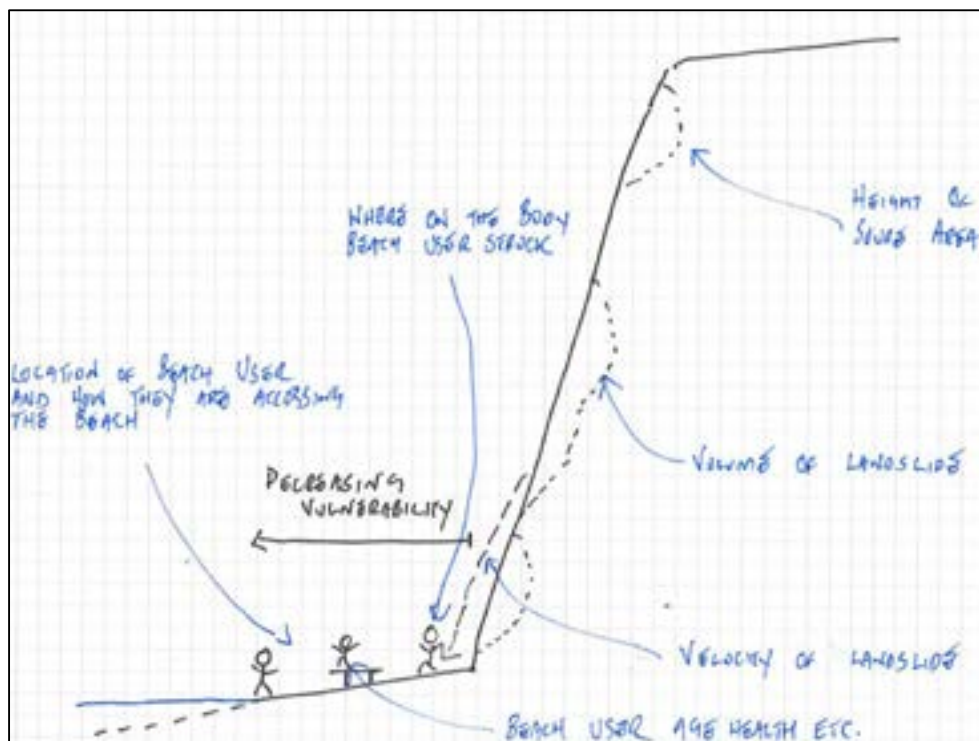 HEIGHT OF
SOURE AREA
WHERE ON THE BODY
BEACH USER STRUCK
LOCATION OF BEACH USER
AND HOW THEY ARE ACCESSING
THE BEACH
VOLUME OF LANDSLIDE
DECREASING
VULNERABILITY
VELOCITY OF LANDSLIDE
BEACH USER AGE HEALTH ETC.